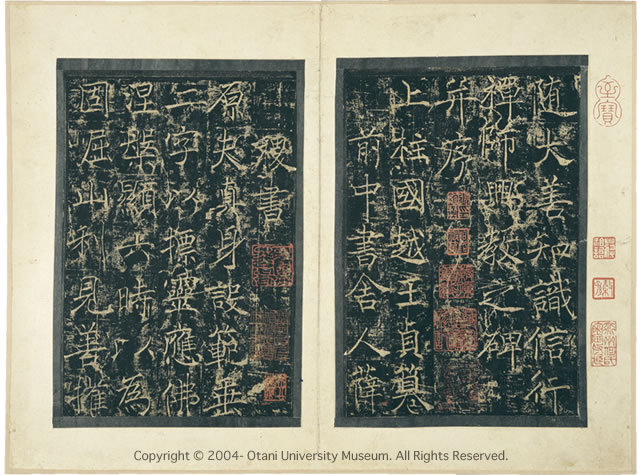 隨大善知識信行
禪師興教之碑
并序
上柱國越王貞
前中書舍人薛
稷書
原夫真身設範垂
字以標靈應佛
涅槃顯六時以為
固屈利見善權
至寶
Copyright © 2004- Otani University Museum. All Rights Reserved.